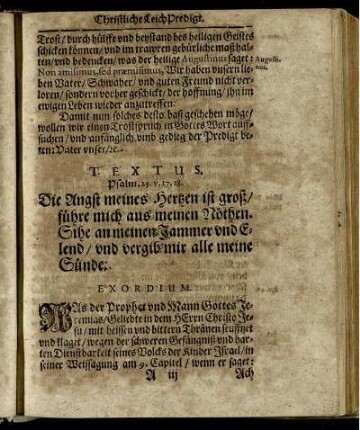 Christliche Leich Predigt.
Trost/durch hülffe vnd beystand des heiligen Geistes
schicken können/vnd im trawren gebürliche maß hal-
ten/vnd bedencken/was der heilige Augustinus saget: Augusti-
nus.
Non amisimus, sed præmisimus, Wir haben vnsern lie-
ben Vater/Schwaher/vnd guten Freund nicht ver-
loren/sondern vorher geschickt/der hoffnung/ihn im
ewigen Leben wieder anzutreffen.
Damit nun solches desto baß geschehen möge/
wollen wir einen Trostspruch in Gottes Wort auff-
suchen/vnd anfänglich vmb gedieg der Predigt be-
ten: Vater vnser/ꝛc.
TEXTUS,
Psalm. 25. v. 17. 18.
Die Angst meines Hertzen ist groß/
führe mich aus meinen Nöthen.
Sihe an meinen Jammer vnd E-
lend/vnd vergib mir alle meine
Sünde.
EXORDIUM.
WAs der Prophet vnd Mann Gottes Je-
remias/Geliebte in dem HErrn Christo Je-
su/mit heissen vnd bittern Thränen seufftzet
vnd klaget/wegen der schweren Gefängnüß vnd har-
ten Dienstbarkeit seines Volcks der Kinder Israel/in
seiner Weissagung am 9. Capitel/wenn er saget:
A iij Ach